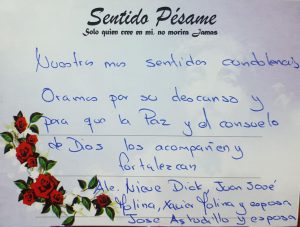 Sentido Pésame
Solo quien cree en mi. no morira Jamas
Nuestras mas sentidas condolencias
Oramos por su descanso y
para que la Paz y el consuelo
de Dios los acompañen y
fortalezcan
Ale, Nieve Dick, Juan José
Molina, Xavier Molina y esposa
Jose Astudillo y esposa